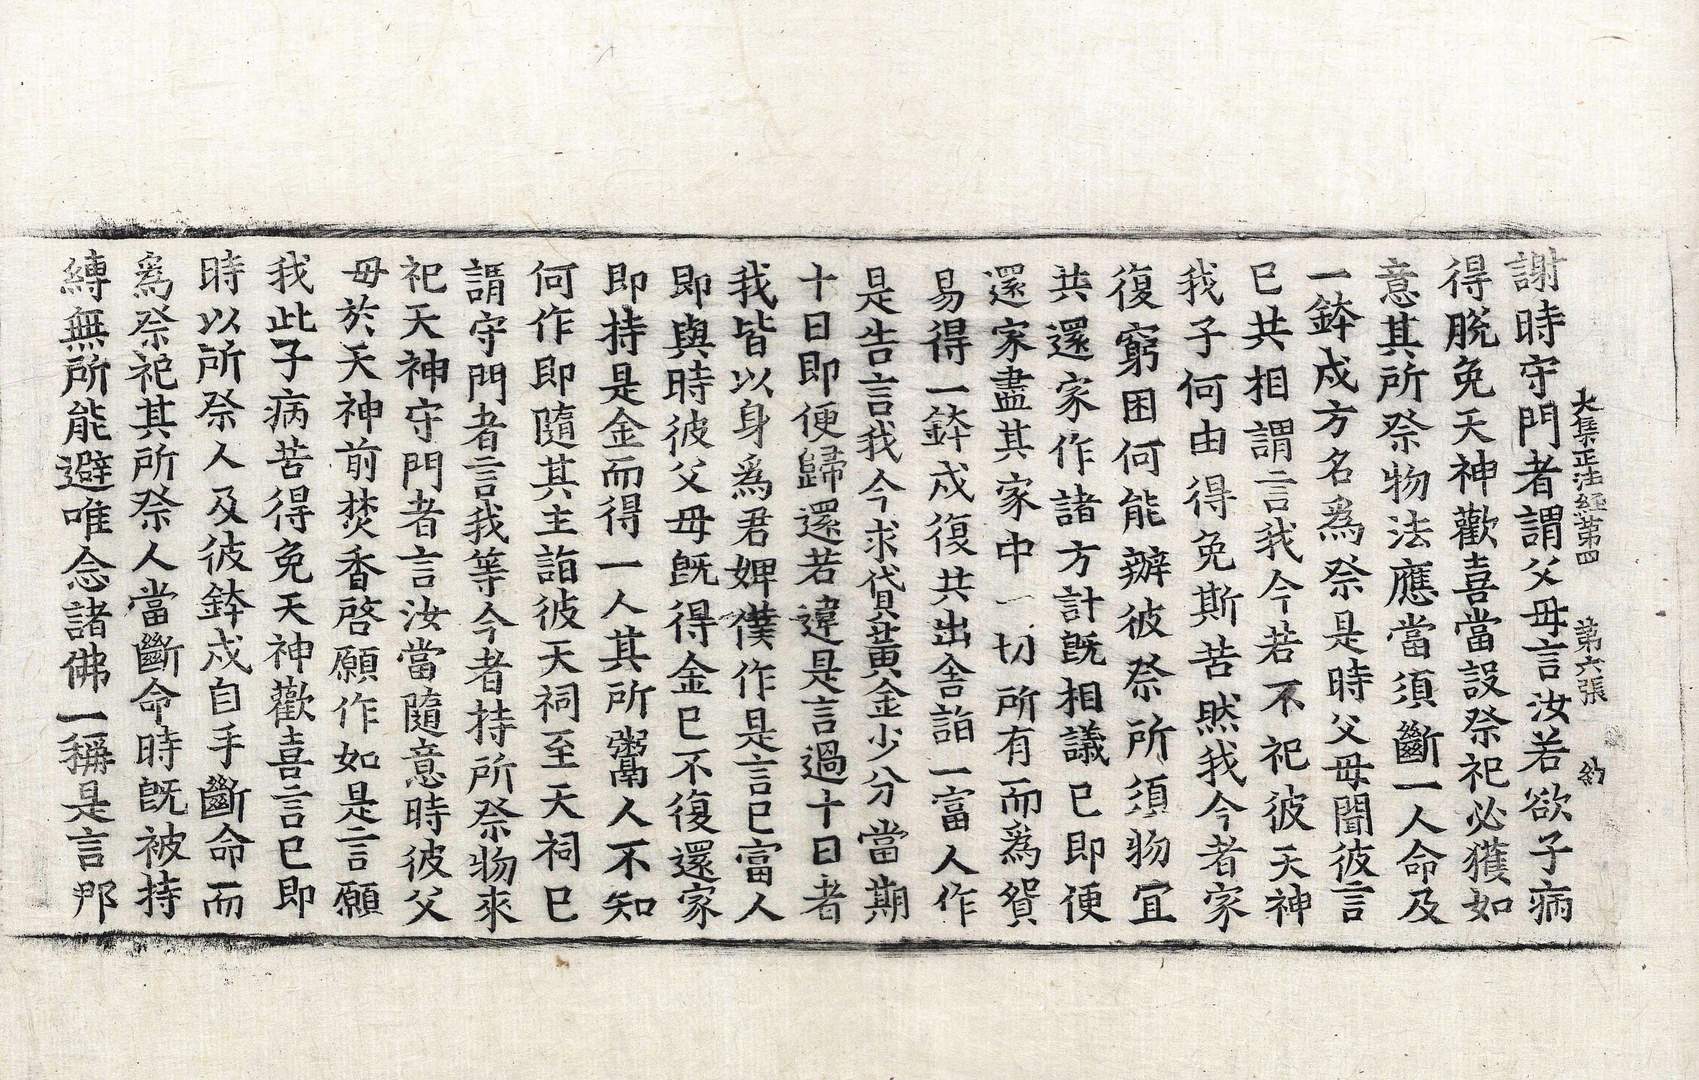 大集正法經第四 第六張 約
謝時守門者謂父母言汝若欲子病
得脫免天神歡喜當設祭祀必獲如
意其所祭物法應當須斷一人命及
一鉢成方名爲祭是時父母聞彼言
已共相謂言我今若不祀彼天神
我子何由得免斯苦然我今者家
復窮困何能辦彼祭所須物宜
共還家作諸方計旣相議已即便
還家盡其家中一切所有而爲貿
易得一鉢成復共出舍詣一富人作
是告言我今求貸黃金少分當期
十日即便歸還若違是言過十日者
我皆以身爲君婢僕作是言已富人
即與時彼父母旣得金已不復還家
即持是金而得一人其所鬻人不知
何作即隨其主詣彼天祠至天祠已
謂守門者言我等今者持所祭物來
祀天神守門者言汝當隨意時彼父
母於天神前焚香啓願作如是言願
我此子病苦得免天神歡喜言已即
時以所祭人及彼鉢成自手斷命而
爲祭祀其所祭人當斷命時旣被持
縛無所能避唯念諸佛一稱是言那